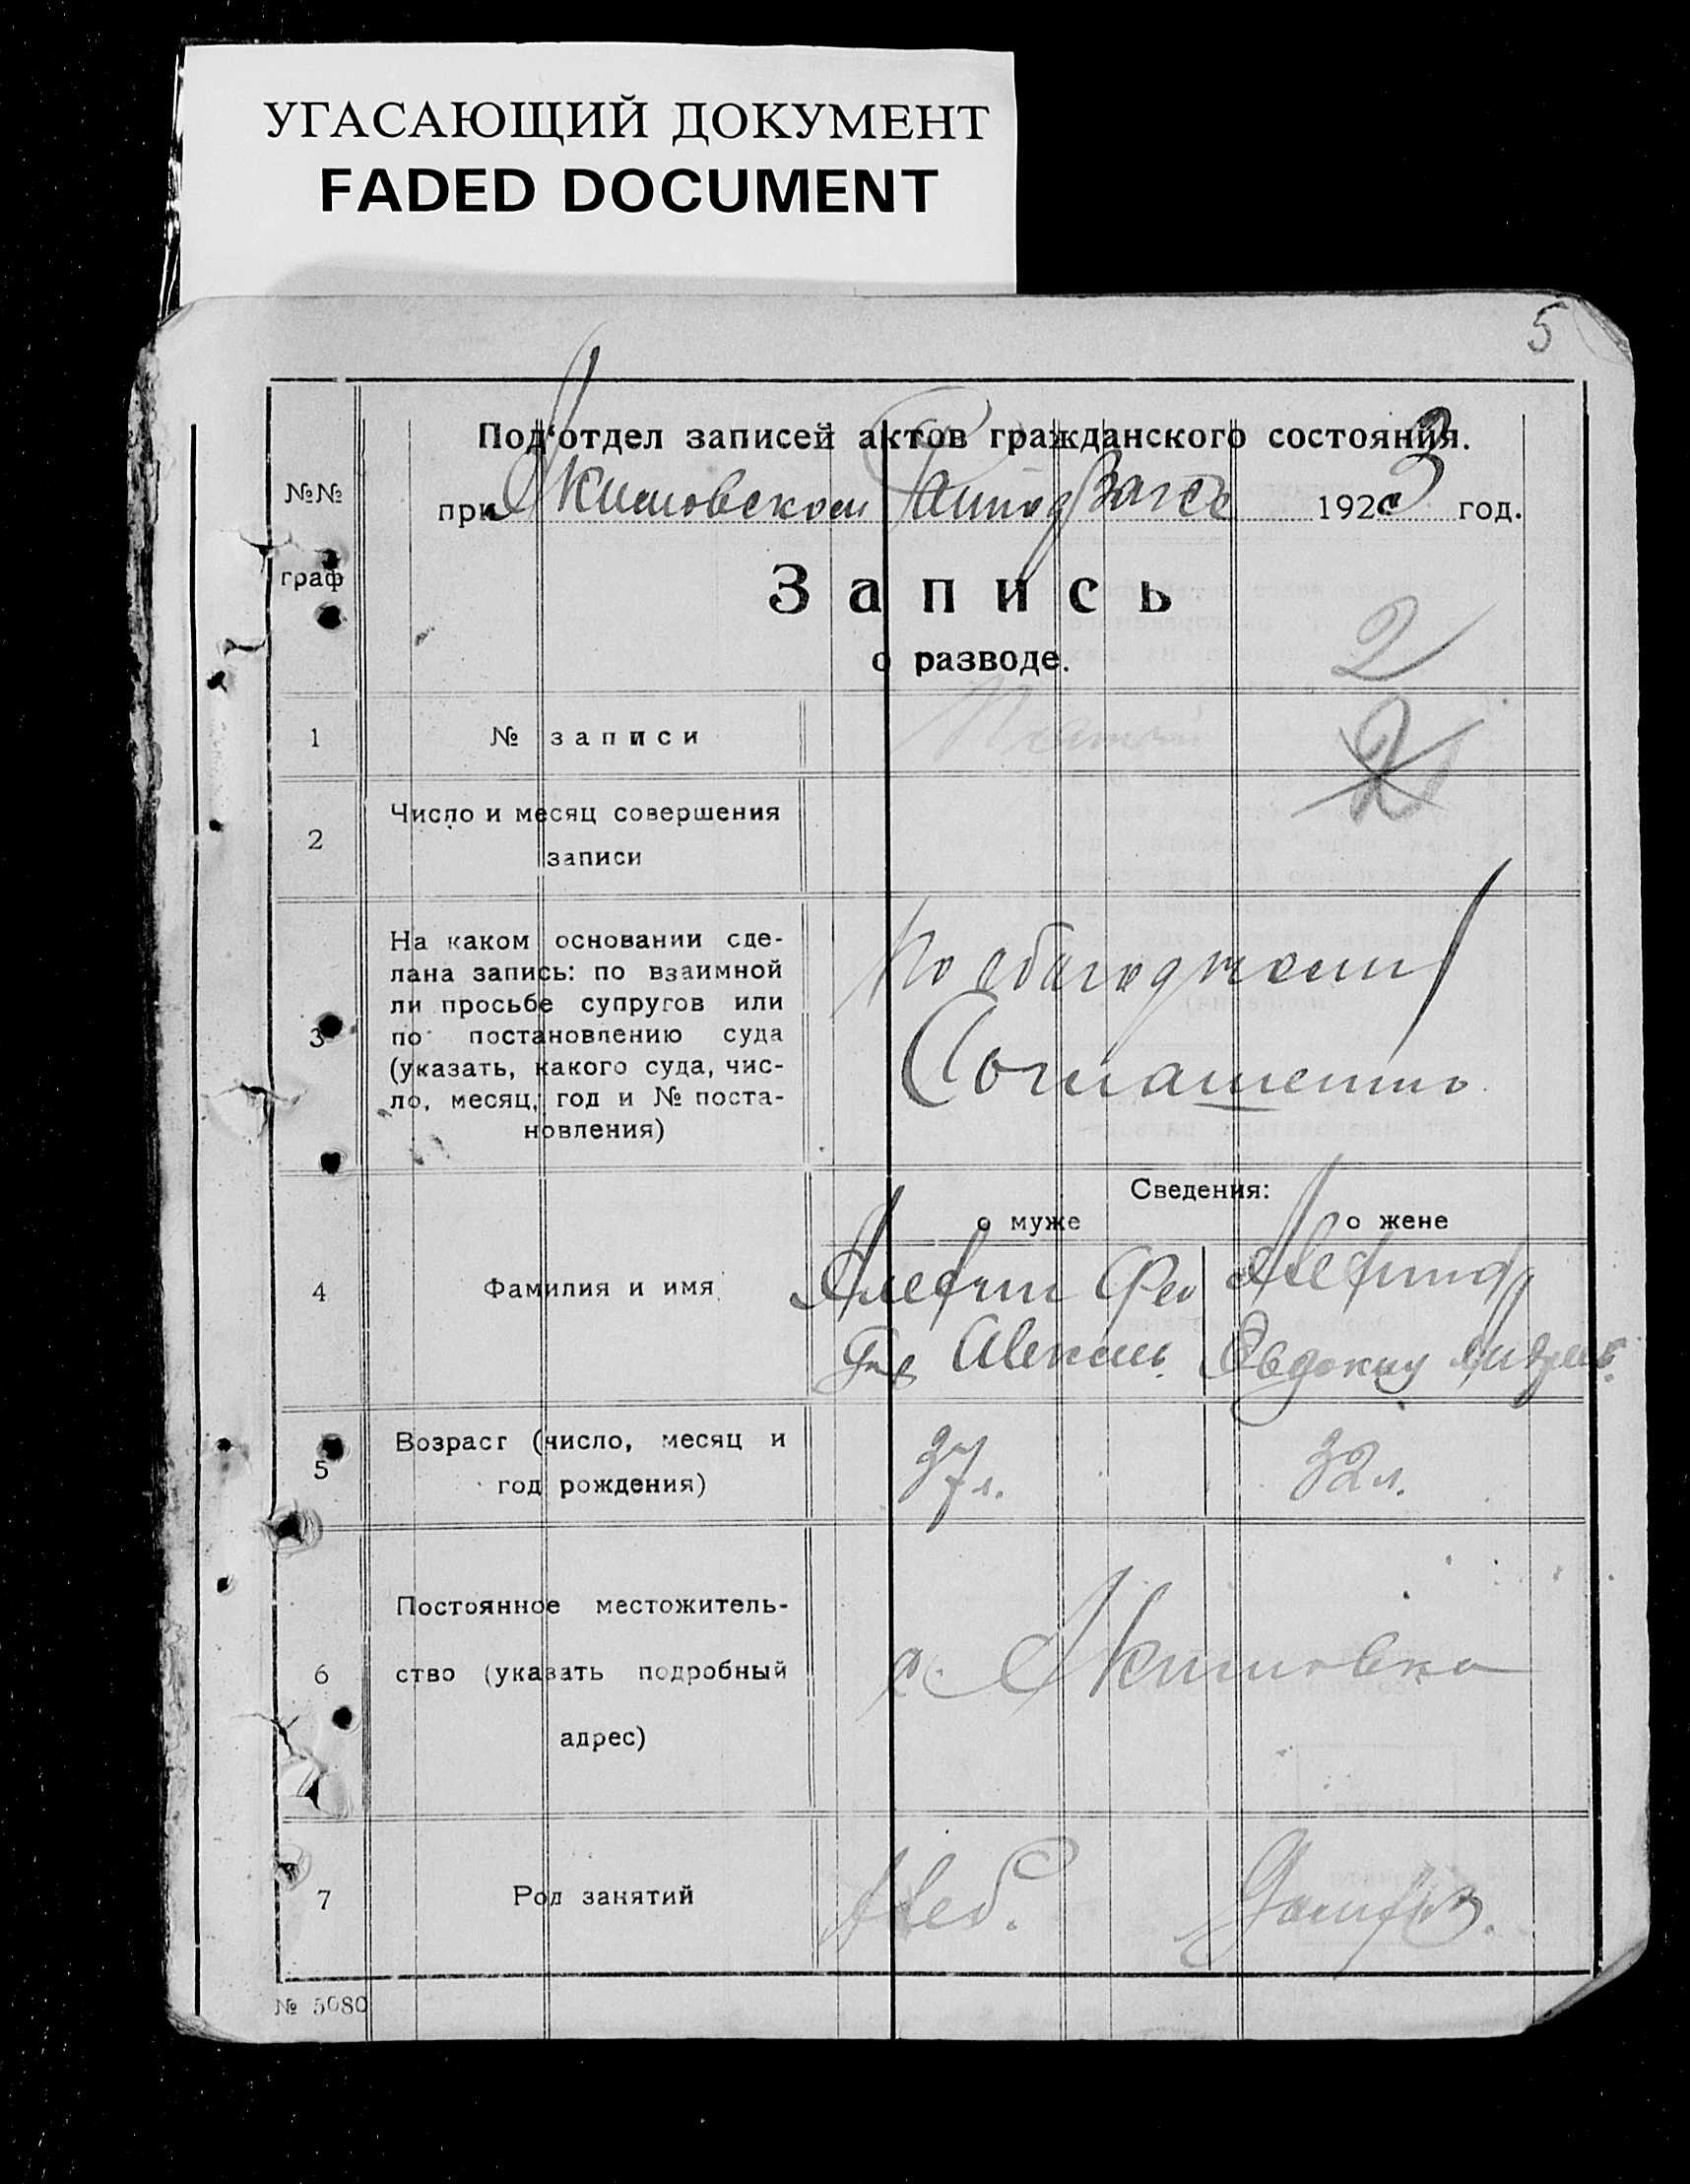 УГАСАЮЩИЙ ДОКУМЕНТ
FADED DOCUMENT
5
Подотдел записей актов гражданского состояния.
№№
при Акимовском 1923 год.
граф
Запись
о разводе.
2
1 № записи
2
2 Число и месяц совершения
записи
3 На каком основании сде-
лана запись: по взаимной
ли просьбе супругов или
по постановлению суда
(указать, какого суда, чис-
ло, месяц, год и № поста-
новления)
По обоюдному
Соглашению
Сведения:
о муже о жене
4 Фамилия и имя
Евдокия
5 Возраст (число, месяц и
год рождения)
37 л. 32 л.
6 Постоянное местожитель-
ство (указать подробный
адрес)
с. Акимовка
7 Род занятий
Хлеб. Домхоз.
№ 5080